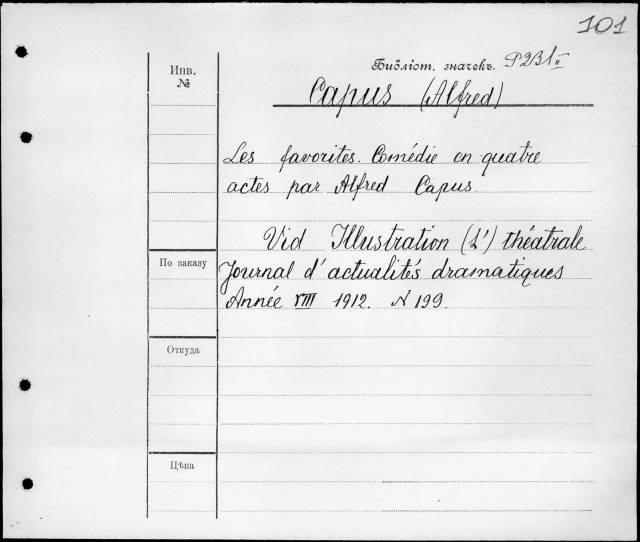 101
Инв.
№
Библіот. значекъ. P2B1 II
Capus (Alfred)
Les favorites. Comédie en quatre
actes par Alfred Capus.
Vid Illustration (L') théatrale
По заказу
Journal d'actualités dramatiques
Année VIII 1912. N 199.
Откуда
Цѣна